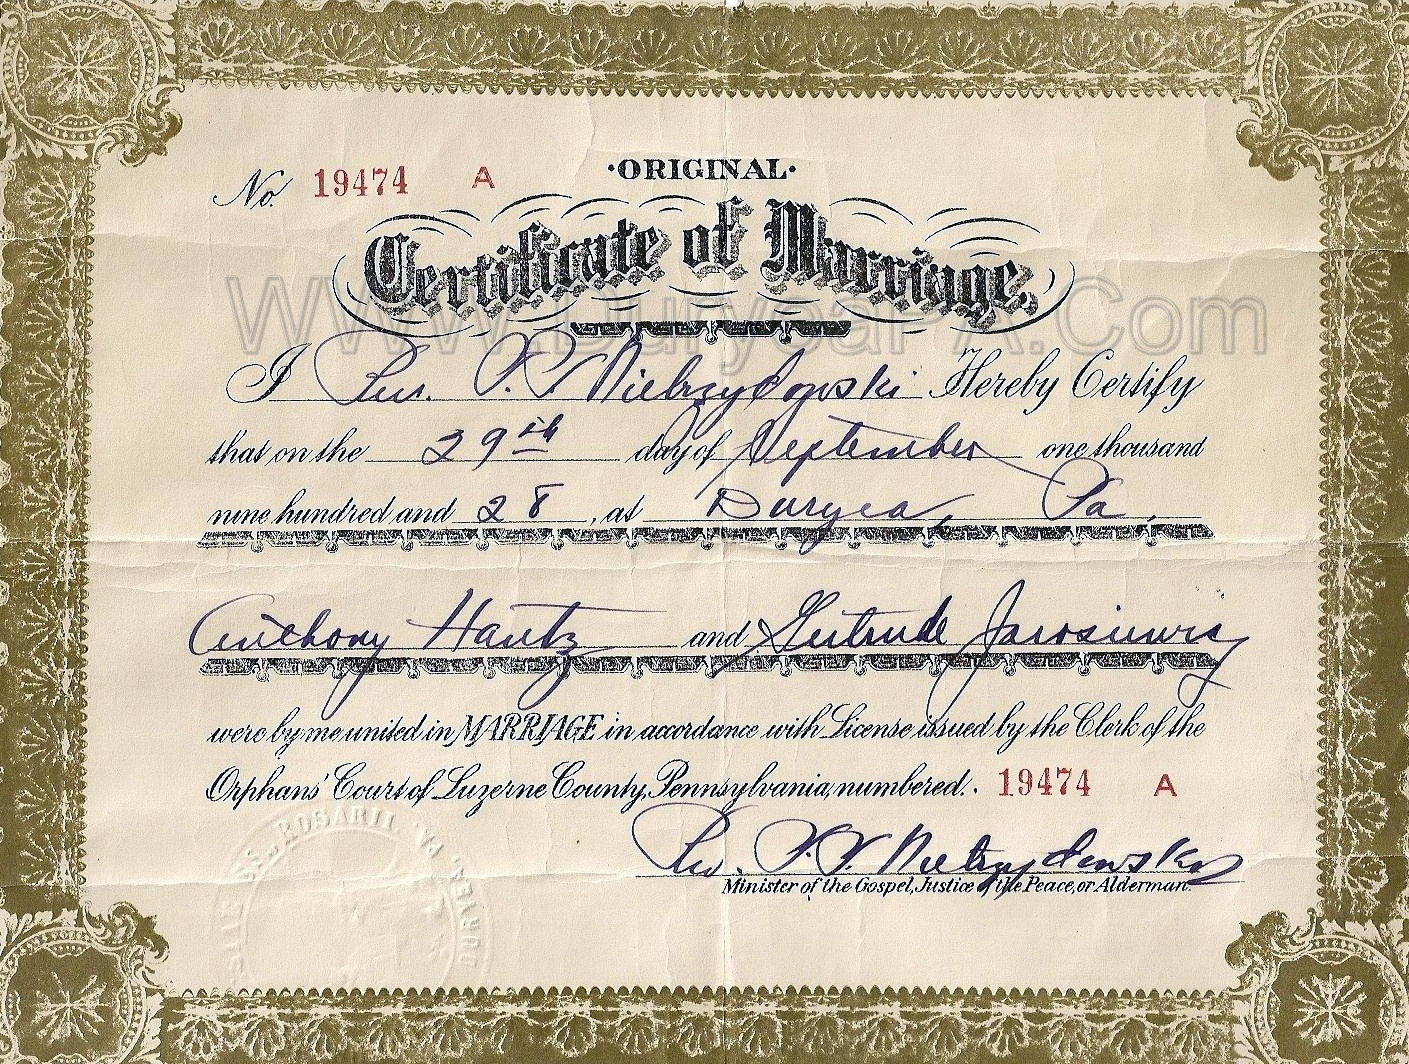 ·ORIGINAL·
No. 19474 A
Certificate of Marriage.
www.DuryeaPA.Com
I Rev. P. P. Nietrzydowski Hereby Certify
that on the 29th day of September one thousand
nine hundred and 28, at Duryea, Pa.
Anthony Hantz and Gertrude Jarosiewicz
were by me united in MARRIAGE in accordance with License issued by the Clerk of the
Orphans' Court of Luzerne County, Pennsylvania, numbered. 19474 A
Rev. P. P. Nietrzydowski
Minister of the Gospel, Justice of the Peace, or Alderman.
SS. ROSARII. DURYEA, PA.